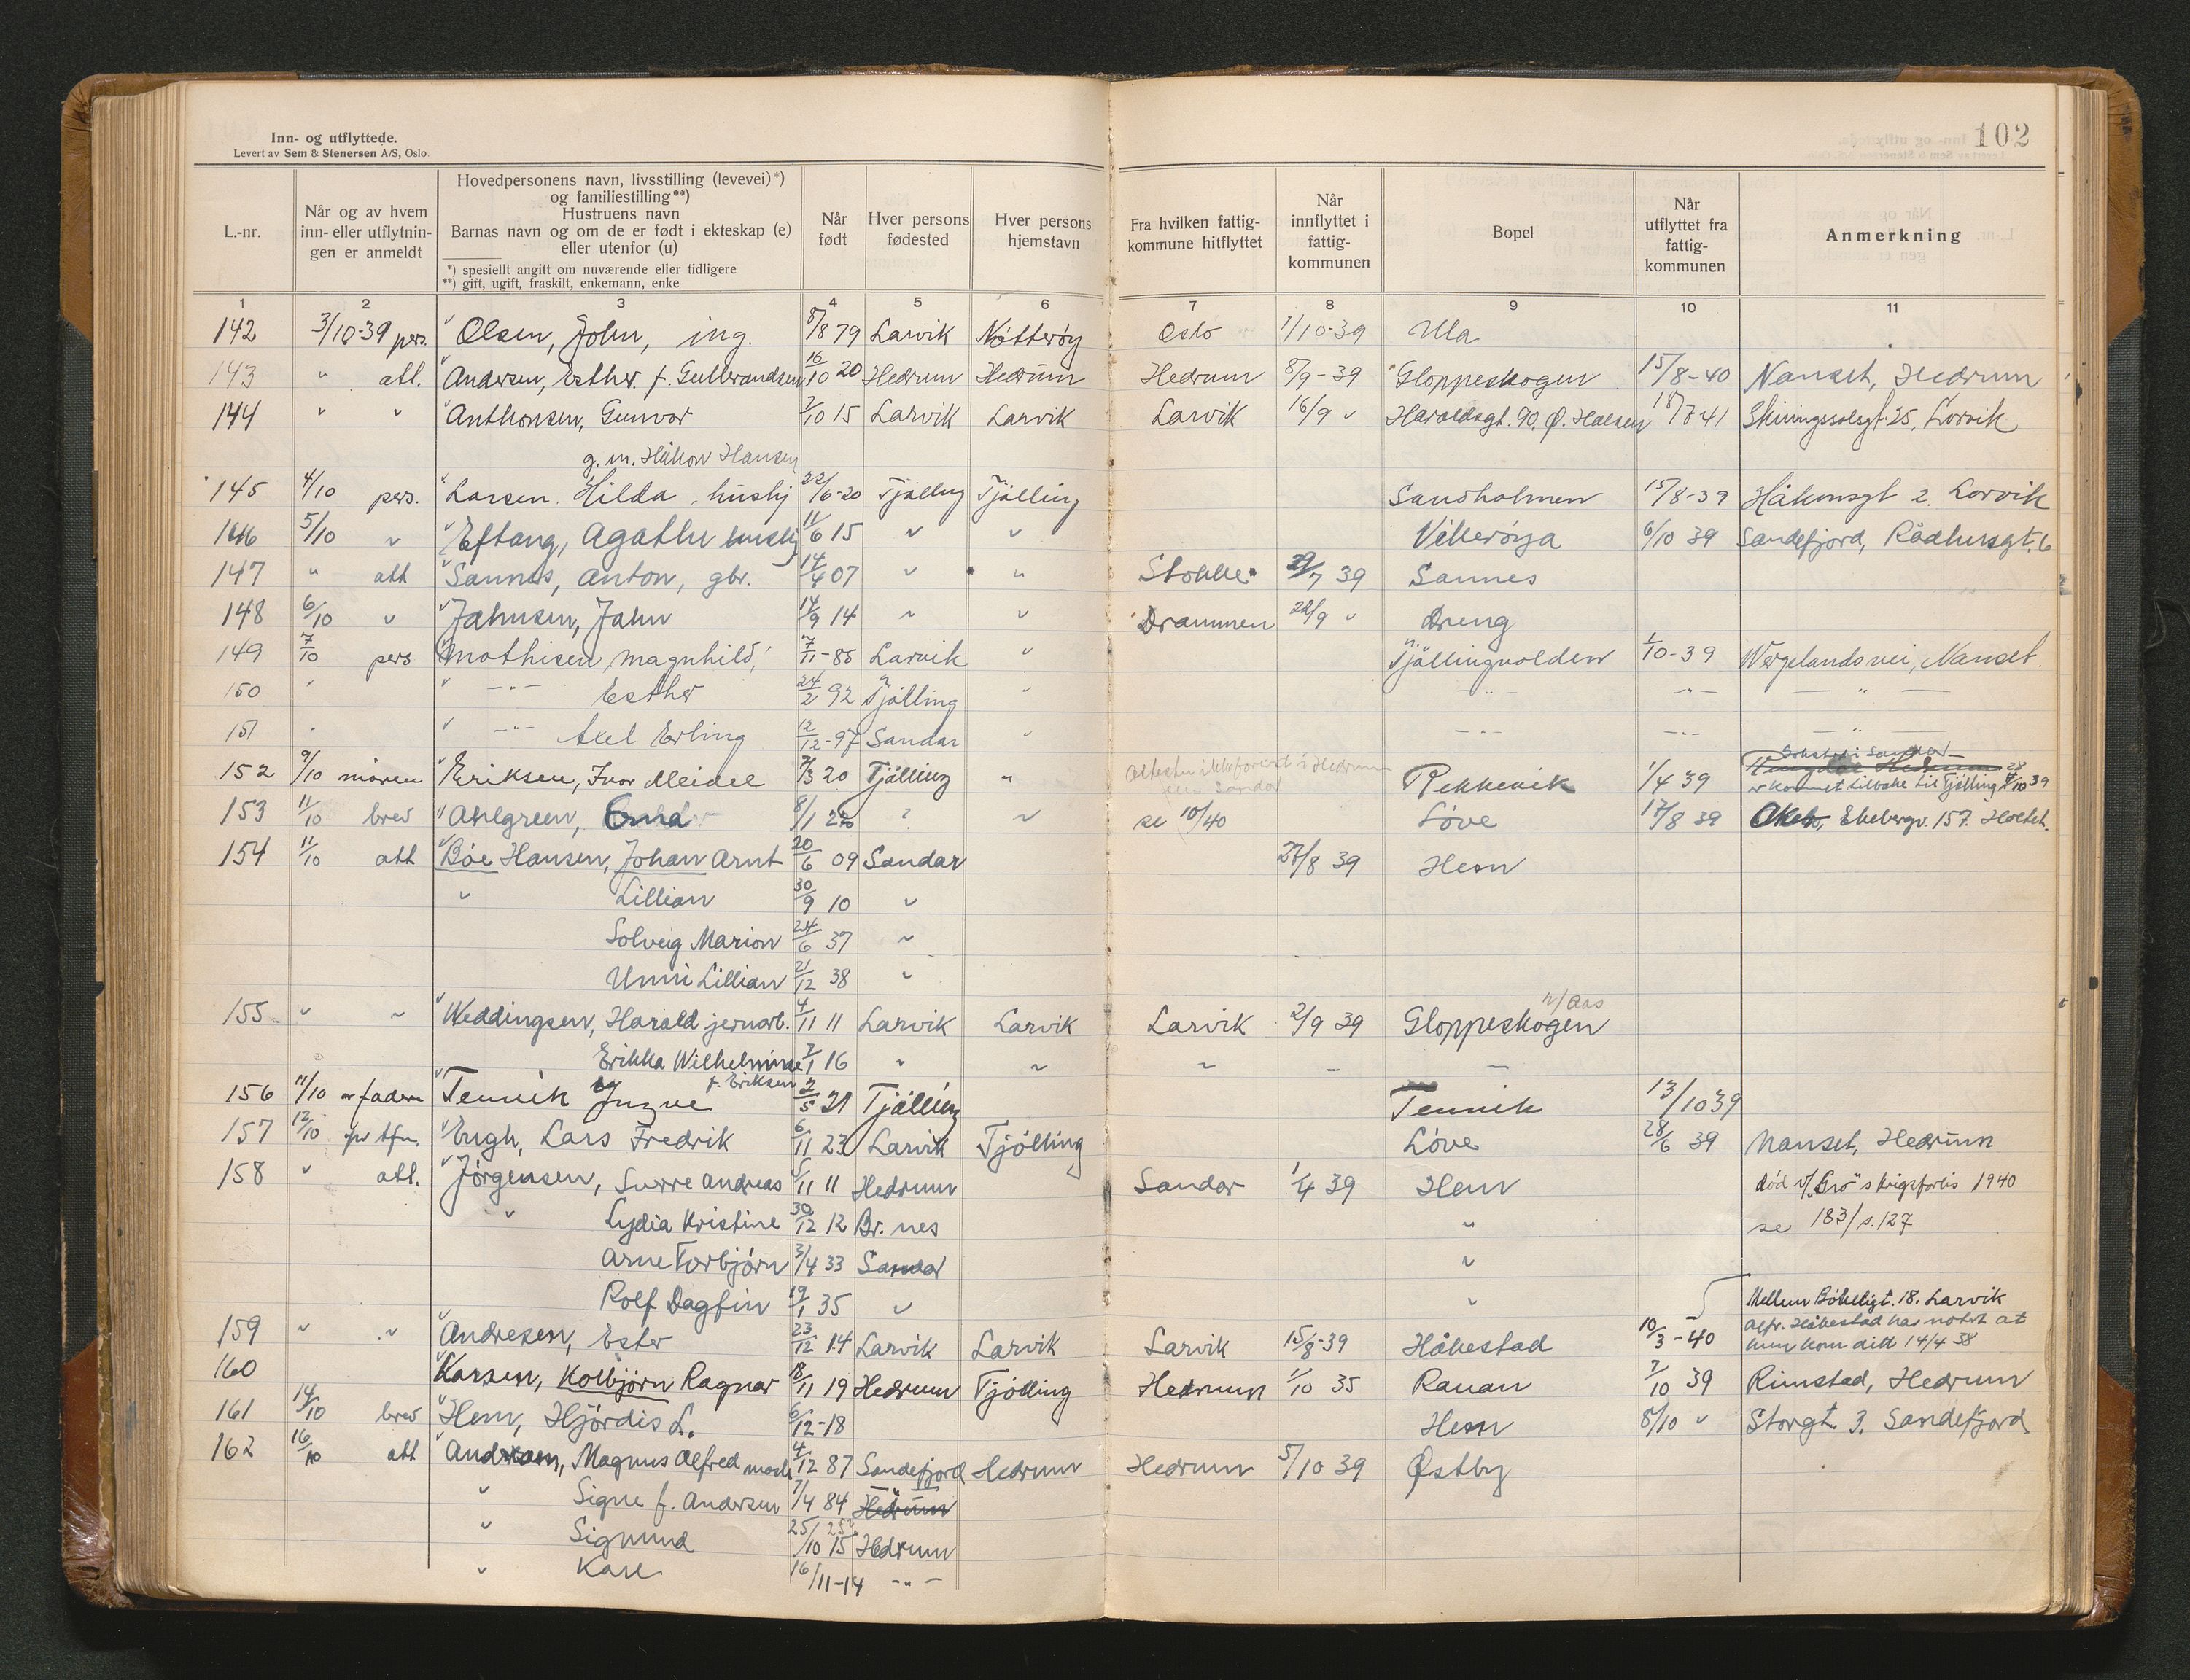 Inn- og utflyttede.
Levert av Sem & Stenersen A/S, Oslo.
102
L.-nr.
Når og av hvem inn- eller utflytnin- gen er anmeldt
Hovedpersonens navn, livsstilling (levevei)*)
og familiestilling**)
Hustruens navn
Barnas navn og om de er født i ekteskap (e)
eller utenfor (u)
*) spesiellt angitt om nuværende eller tidligere
**) gift, ugift, fraskilt, enkemann, enke
Når født
Hver persons fødested
Hver persons hjemstavn
Fra hvilken fattig- kommune hitflyttet
Når innflyttet i fattig- kommunen
Bopel
Når utflyttet fra fattig- kommunen
Anmerkning
1 2 3 4 5 6 7 8 9 10 11
142 3/10-39 pers. Olsen, John, ing. 8/8 79 Larvik Nøtterøy Oslo 1/10-39 Ula
143 " att. Andersen, Esther f. Gulbrandsen 16/10 20 Hedrum Hedrum Hedrum 8/9-39 Gloppeskogen 15/8-40 Nanset, Hedrum
144 " " Anthonsen, Gunvor 7/10 15 Larvik Larvik Larvik 16/9 " Haraldsgt. 90. Ø. Halsen 18/7 41 Skiringssalsgt 25, Larvik
g. m. Håkon Hansen
145 4/10 pers. Larsen. Hilda, hushj 22/6-20 Tjølling Tjølling Sandholmen 15/8-39 Håkonsgt 2. Larvik
146 5/10 " Eftang, Agathe hushj 11/6 15 " " Villerøya 6/10 39 Sandefjord, Rådhusgt. 6
147 " att Sannes, Anton, gbr. 14/4 07 " " Stokke 29/7 39 Sannes
148 6/10 " Jahnsen, Jahn 14/9 14 " " Drammen 22/9 " Dreng
149 7/10 pers Mathisen, Magnhild, 7/11-85 Larvik " Tjøllingvolden 1/10-39 Wergelandsvei, Nanset.
150 " " -"- Esther 24/2 92 Tjølling " -"- -"- -"-
151 " " -"- Axel Erling 12/12-97 Sandar " -"- -"- -"-
Bokstad i Sandar
152 9/10 moren Eriksen, Ivar Meidel 7/3 20 Tjølling " Attesten ikke forevist i Hedrum Rekkevik 1/4 39 Hedrum
eller Sandar er kommet tilbake til Tjølling 28/10 39
153 11/10 brev Ahlgreen, Erna 8/1 ? " se 10/40 Løve 17/8 39 Ekebergv. 157. Holtet.
154 11/10 att Bøe Hansen, Johan Arnt 20/6 09 Sandar 27/8 39 Hem
" Lillian 30/9 10 "
Solveig Marion 24/6 37 "
Unni Lillian 21/12 38 "
155 " " Weddingsen, Harald jernarb. 4/11 11 Larvik Larvik Larvik 2/9 39 Gloppeskogen n/ Aas
Erikka Wilhelmine 7/1 16 " " " - -
f. Eriksen
156 11/10 av faderen Tenvik Yngve 2/5 21 Tjølling Tenvik 13/10 39
157 12/10 Engh, Lars Fredrik 6/11 23 Larvik Tjølling Løve 28/6 39 Nanset, Hedrum
158 " att. Jørgensen, Sverre Andreas 5/11 11 Hedrum Sandar 1/4 39 Hem død v/ "Gro"s krigsforlis 1940
" Lydia Kristine 30/12 12 Br. nes " se 183/s.127
Arne Torbjørn 3/4 33 Sandar "
Rolf Dagfin 19/1 35 " " Mellom Bøkeligt. 18. Larvik
159 " " Andresen, Ester 23/12 14 Larvik Larvik Larvik 15/8-39 Håkestad 10/3-40 Alfr. Håkestad har notert at
hun kom dit 14/4 38
160 Karsen, Kolbjørn Ragnar 18/11 19 Hedrum Tjølling Hedrum 1/10 35 Rauan 7/10 39 Rimstad, Hedrum
161 14/10 brev Hem, Hjørdis L. 6/12-18 Hem 8/10 " Storgt 3. Sandefjord
162 16/10 att Andresen, Magnus Alfred 4/12 87 Sandefjord Hedrum Hedrum 5/10 39 Østby
" Signe f. Andersen 7/4 84 -"- Hedrum
" Sigmund 25/10 15 Hedrum
" Kare 16/11-14 -"-